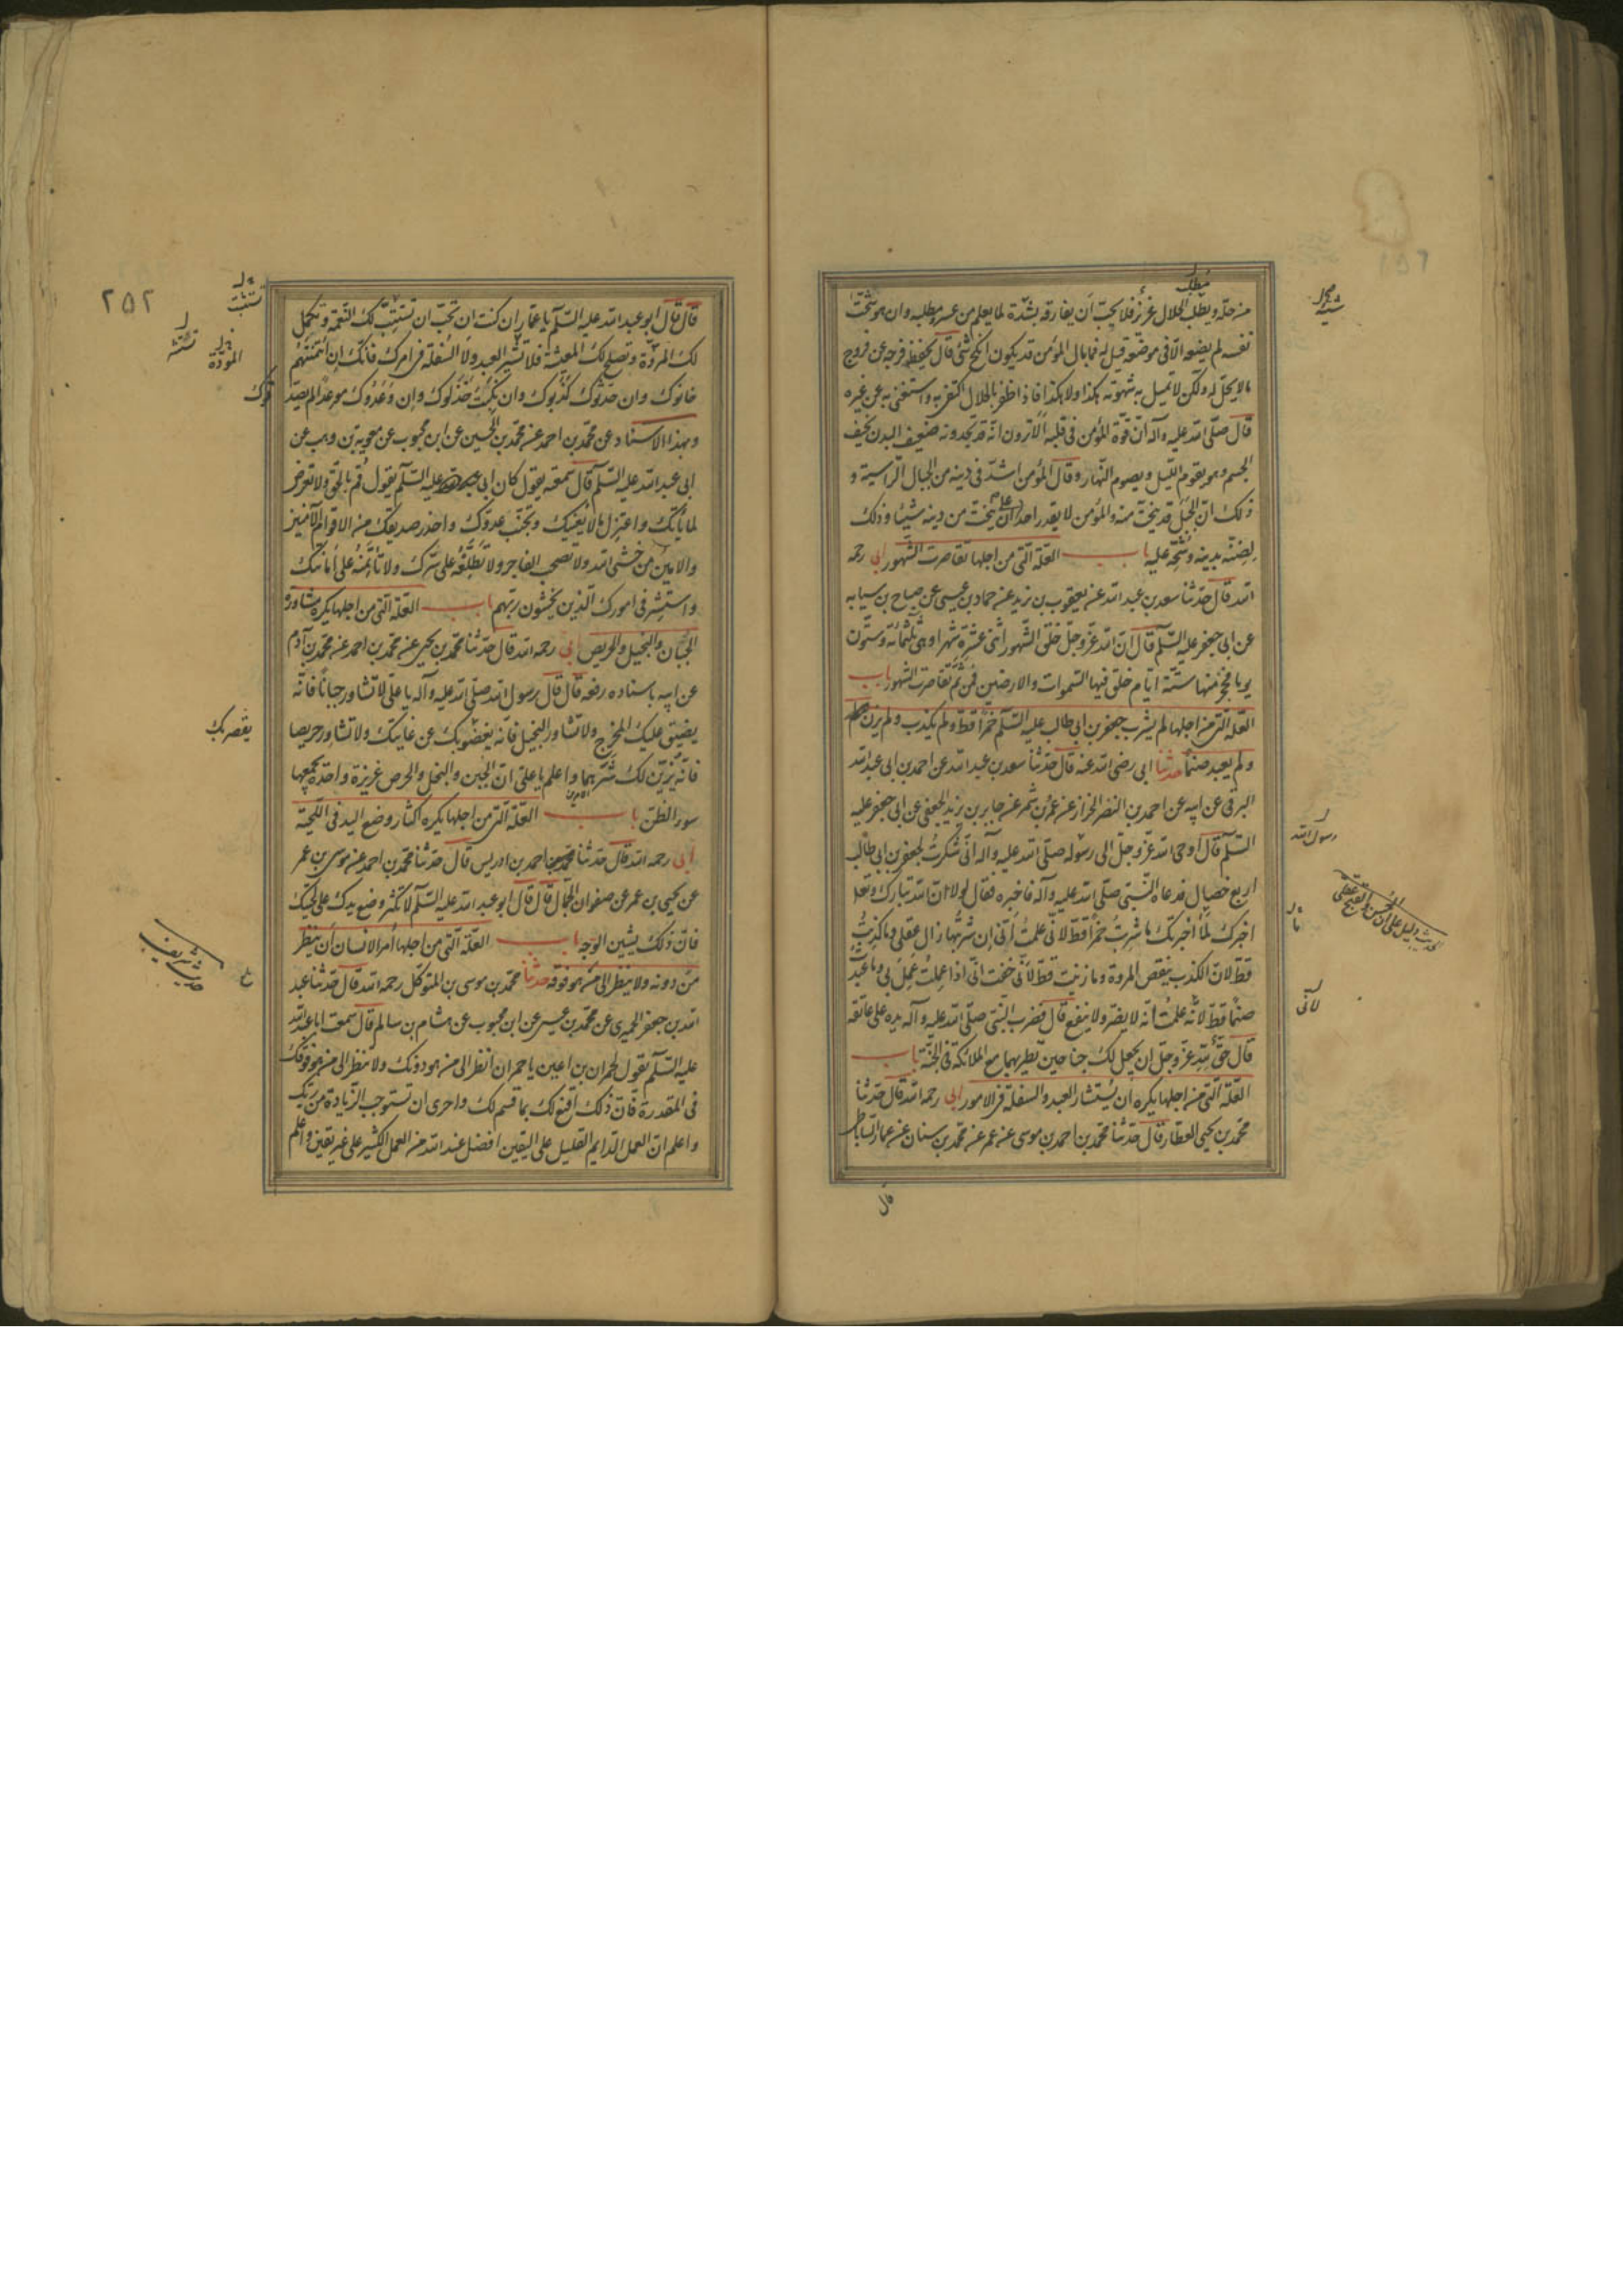 من حله ويطلب الحلال عزيز فلا يحب أن يفارقه بشدة لما يعلم من عسر مطلبه وان هو سخت
نفسه لم يضعه الا في موضعه قيل له فما بال المؤمن قد يكون انكح شئ قال لحفظه فرجه عن فروج
ما لا يحل له ولكن لا تميل به شهوته هكذا ولا هكذا فاذا ظفر بالحلال اكتفى به واستغنى به عن غيره
قال صلى الله عليه وآله ان قوة المؤمن في قلبه ألا ترون انه قد تجدونه ضعيف البدن نحيف
الجسم وهو يقوم الليل ويصوم النهار وقال المؤمن اشد في دينه من الجبال الراسية و
ذلك ان الجبل قد ينحت منه والمؤمن لا يقدر احد على ان ينحت من دينه شيئا وذلك
لضنه بدينه وشحه عليه باب العلة التي من اجلها تقاصرت الشهور ابي رحمه
الله قال حدثنا سعد بن عبد الله عن يعقوب بن يزيد عن حماد بن عيسى عن صباح بن سيابه
عن ابي جعفر عليه السلم قال ان الله عز وجل خلق الشهور اثنى عشرة شهرا وهي ثلثمائة وستون
يوما فحجز منها ستة ايام خلق فيها السموات والارضين فمن ثم تقاصرت الشهور باب
العلة التي من اجلها لم يشرب جعفر بن ابي طالب عليه السلم خمرا قط ولم يكذب ولم يزن
ولم يعبد صنما حدثنا ابي رضى الله عنه قال حدثنا سعد بن عبد الله عن احمد بن ابي عبد الله
البرقي عن ابيه عن احمد بن النضر الخزاز عن عمر بن شمر عن جابر بن يزيد الجعفي عن ابي جعفر عليه
السلم قال اوحى الله عز وجل الى رسوله صلى الله عليه وآله اني شكرت لجعفر بن ابي طالب
اربع خصال فدعاه النبي صلى الله عليه وآله فاخبره فقال لولا ان الله تبارك وتعلا
اخبرك لما أخبرتك ما شربت خمرا قط لاني علمت أني إن شربتها زال عقلي وما كذبت
قط لان الكذب ينقص المروة وما زنيت قط لاني خفت اني اذا عملت عمل بي وما عبدت
صنما قط لانه علمت انه لا يضر ولا ينفع قال فضرب النبي صلى الله عليه وآله يده على عاتقه
قال حق لله عز وجل ان يجعل لك جناحين تطير بهما مع الملائكة في الجنة باب
العلة التي من اجلها يكره ان يستشار العبد والسفلة في الامور ابي رحمه الله قال حدثنا
محمد بن يحيى العطار قال حدثنا محمد بن احمد بن موسى عن عمر عن محمد بن سنان عن عمار الساباطي
قال
رسول الله
ما
لأني
٢٥٢
قال قال ابو عبد الله عليه السلم يا عمار ان كنت ان تحب ان تستتب لك النعمة وتكمل
لك المروة وتصلح لك المعيشة فلا تشير العبد ولا السفلة في امرك فانك ان ائتمنتهم
خانوك وان حدثوك كذبوك وان نكبت خذلوك وان وعدوك موعدا لم يصدقوك
وبهذا الاسناد عن محمد بن احمد عن محمد بن الحسين عن ابن محبوب عن معوية بن وهب عن
ابي عبد الله عليه السلم قال سمعته يقول كان ابي عليه السلم يقول قم بالحق ولا تعرض
لما نأبك واعتزل ما لا يعنيك وتجنب عدوك واحذر صديقك من الاقوام الا الامين
والامين من خشى الله ولا تصحب الفاجر ولا تطلعه على سرك ولا تأتمنه على أمانتك
واستشر في امورك الذين يخشون ربهم باب العلة التي من اجلها يكره مشاورة
الجبان والبخيل والحريص ابي رحمه الله قال حدثنا محمد بن يحيى عن محمد بن احمد عن محمد بن آدم
عن ابيه باسناده رفعه قال قال رسول الله صلى الله عليه وآله يا علي لا تشاور جبانا فانه
يضيق عليك المخرج ولا تشاور البخيل فانه يقصر بك عن غايتك ولا تشاور حريصا
فانه يزين لك شرهما واعلم يا علي ان الجبن والبخل والحرص غريزة واحدة يجمعها
سوء الظن باب العلة التي من اجلها يكره اكثار وضع اليد في اللحية
ابي رحمه الله قال حدثنا احمد بن ادريس قال حدثنا محمد بن احمد عن موسى بن عمر
عن يحيى بن عمر عن صفوان الجمال قال قال ابو عبد الله عليه السلم لا تكثر وضع يدك على لحيتك
فان ذلك يشين الوجه باب العلة التي من اجلها أمر الانسان أن ينظر
من دونه ولا ينظر الى من هو فوقه حدثنا محمد بن موسى بن المتوكل رحمه الله قال حدثنا عبد
الله بن جعفر الحميري عن محمد بن عيسى عن ابن محبوب عن هشام بن سالم قال سمعت ابا عبد الله
عليه السلم يقول لحمران بن اعين يا حمران انظر الى من هو دونك ولا تنظر الى من هو فوقك
في المقدرة فان ذلك اقنع لك بما قسم لك واحرى ان تستوجب الزيادة من ربك
واعلم ان العمل الدايم القليل على اليقين افضل عند الله من العمل الكثير على غير يقين واعلم
المودة
يقصر بك
حديث شريف